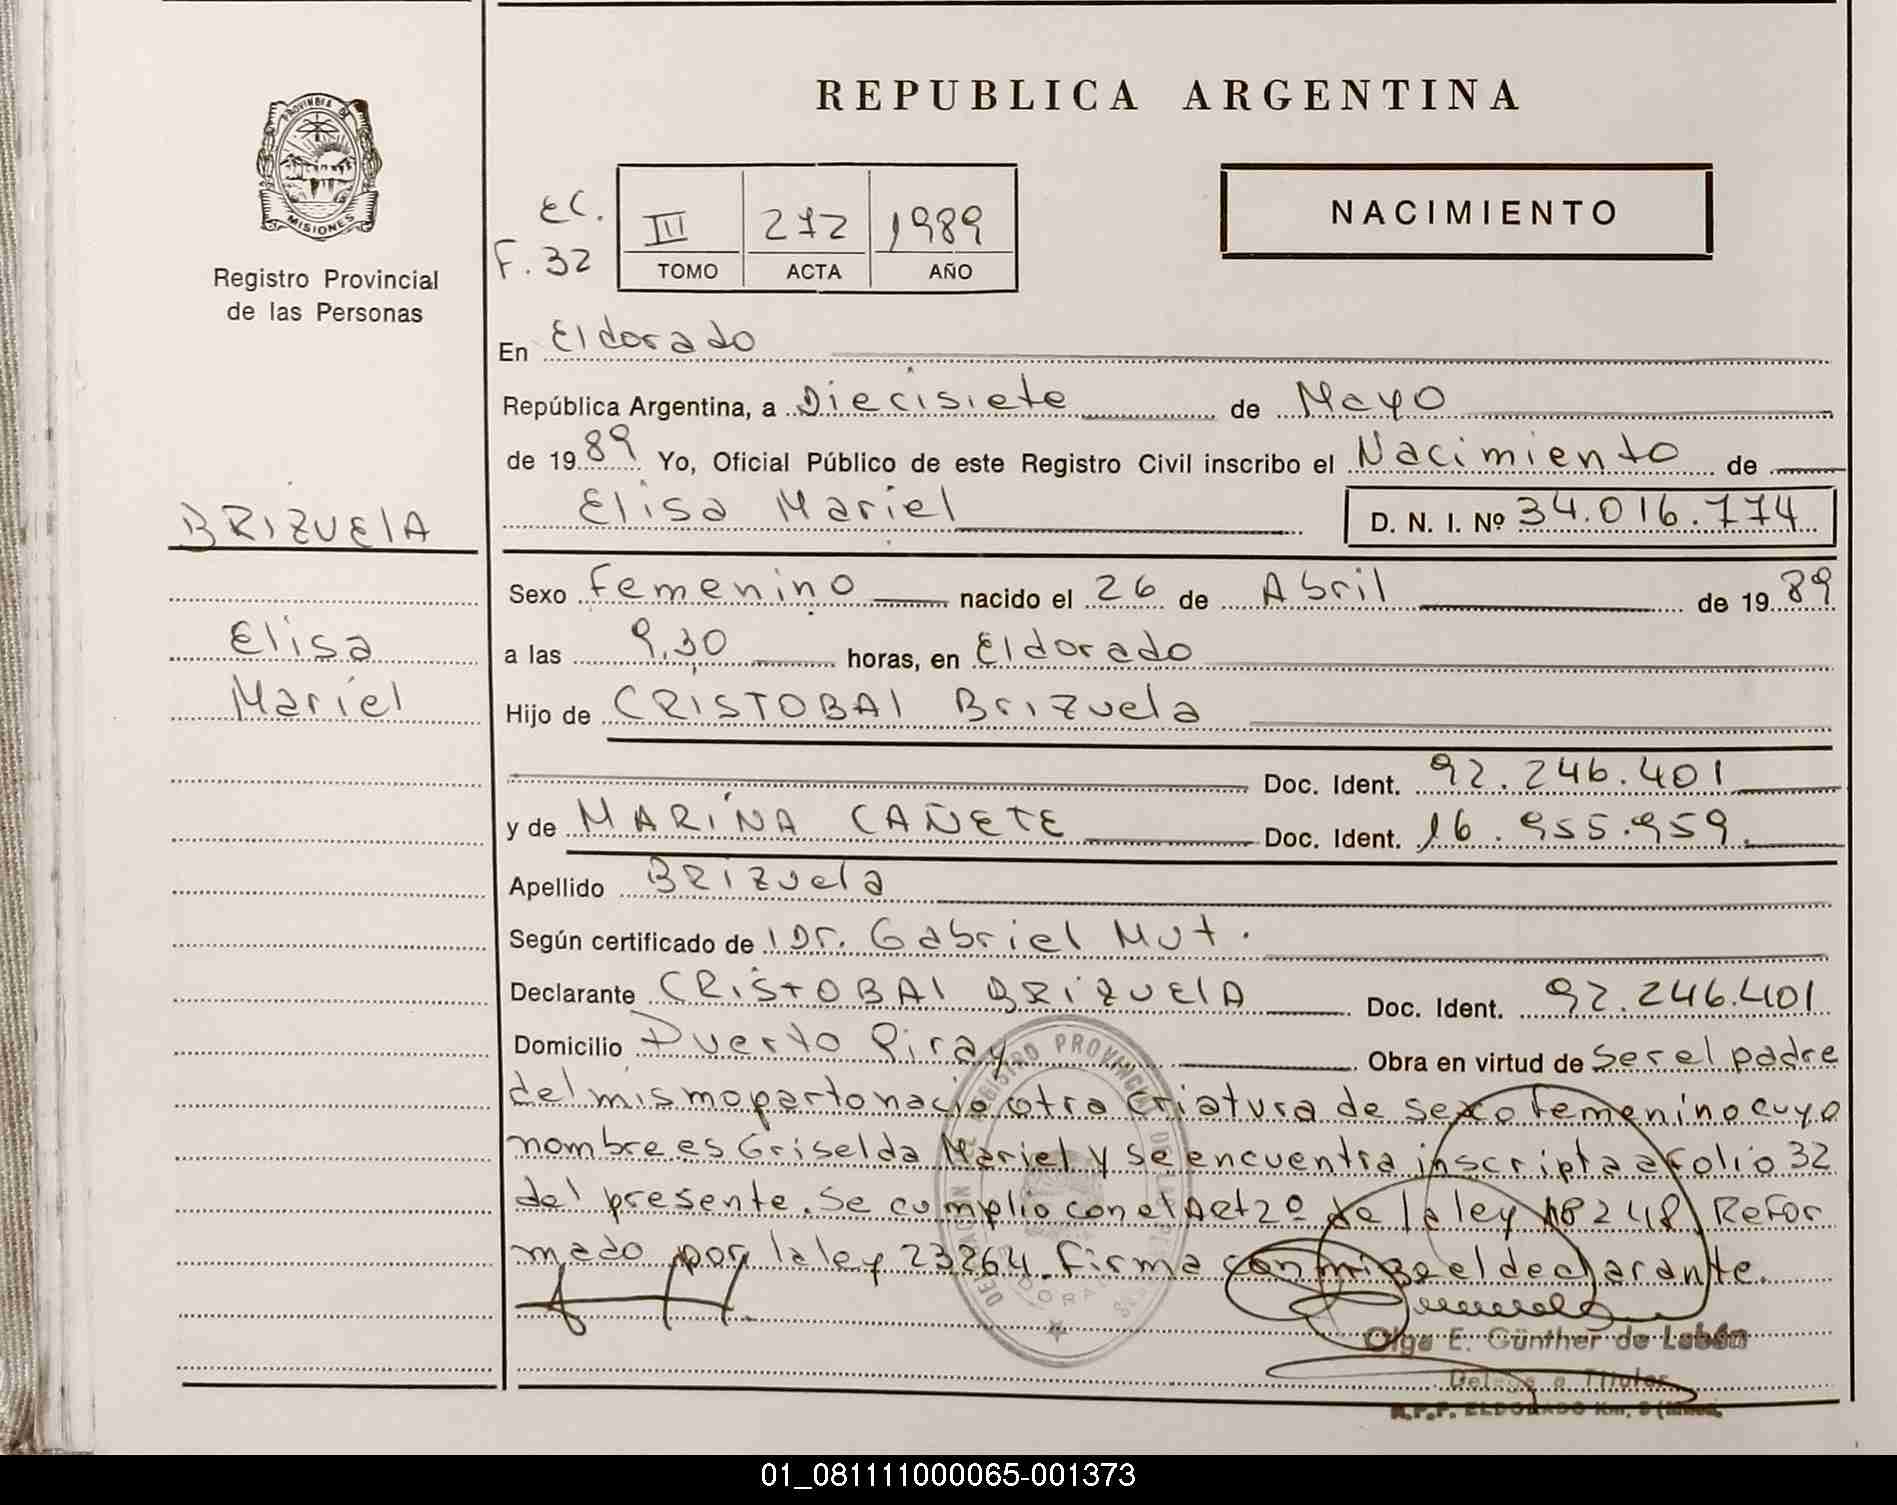 REPUBLICA ARGENTINA
PROVINCIA DE
MISIONES
Registro Provincial
de las Personas
EC.
F. 32
III 272 1989
TOMO ACTA AÑO
NACIMIENTO
En Eldorado
República Argentina, a Diecisiete de Mayo
de 1989 Yo, Oficial Público de este Registro Civil inscribo el Nacimiento de
BRIZUELA
Elisa Mariel D. N. I. Nº 34.016.774
Sexo Femenino nacido el 26 de Abril de 1989
Elisa
a las 9,30 horas, en Eldorado
Mariel
Hijo de CRISTOBAL Brizuela
Doc. Ident. 92.246.401
y de MARINA CAÑETE Doc. Ident. 16.955.959.
Apellido BRIZuela
Según certificado de Dr. Gabriel Mut.
Declarante CRISTOBAL BRIZUELA Doc. Ident. 92.246.401
Domicilio Puerto Piray Obra en virtud de ser el padre
del mismo parto nacio otra criatura de sexo femenino cuyo
nombre es Griselda Mariel y se encuentra inscripta a folio 32
del presente. Se cumplio con el Art 2º de la ley 18248 Refor
mado por la ley 23264. Firma conmigo el declarante.
Olga E. Günther de Labán
Delegada Titular
R.P.P. ELDORADO Km. 9
01_081111000065-001373